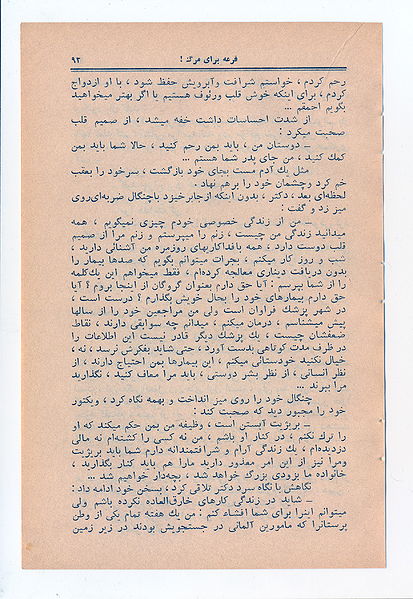 قرعه برای مرگ ! ۹۳
رحم کردم ، خواستم شرافت وآبرویش حفظ شود ، با او ازدواج
کردم ، برای اینکه خوش قلب ورئوف هستیم یا اگر بهتر میخواهید
بگویم احمقم ...
از شدت احساسات داشت خفه میشد ، از صمیم قلب
صحبت میکرد :
ــ دوستان من ، باید بمن رحم کنید ، حالا شما باید بمن
کمك کنید ، من جای پدر شما هستم ...
مثل یك آدم مست بجای خود بازگشت ، سرخود را بعقب
خم کرد وچشمان خود را برهم نهاد .
لحظه‌ای بعد ، دکتر ، بدون اینکه ازجابرخیزد باچنگال ضربه‌ای‌روی
میز زد و گفت :
ــ من از زندگی خصوصی خودم چیزی نمیگویم ، همه
میدانید زندگی من چیست ، زنم را میپرستم و زنم مرا از صمیم
قلب دوست دارد ، همه بافداکاریهای روزمره من آشنائی دارید ،
شب و روز کار میکنم ، بجرات میتوانم بگویم که صدها بیمار را
بدون دریافت دیناری معالجه کرده‌ام ، فقط میخواهم این یك‌کلمه
را از شما بپرسم : آیا حق دارم بعنوان گروگان از اینجا بروم ؟ آیا
حق دارم بیمارهای خود را بحال خویش بگذارم ؟ درست است ،
در شهر پزشك فراوان است ولی من مراجعین خود را از سالها
پیش میشناسم ، درمان میکنم ، میدانم چه سوابقی دارند ، نقاط
ضعفشان چیست ، یك پزشك دیگر قادر نیست این اطلاعات را
در ظرف مدت کوتاهی بدست آورد ، حتی شاید بفکرش نرسد ، نه ،
خیال نکنید خودستائی میکنم ، این بیمارها بمن احتیاج دارند ، از
نظر انسانی ، از نظر بشر دوستی ، باید مرا معاف کنید ، نگذارید
مرا ببرند ...
چنگال خود را روی میز انداخت و بهمه نگاه کرد ، ویکتور
خود را مجبور دید که صحبت کند :
ــ بریژیت آبستن است ، وظیفه من بمن حکم میکند که او
را ترك نکنم ، در کنار او باشم ، من نه کسی را کشته‌ام نه مالی
دزدیده‌ام ، یك زندگی آرام و شرافتمندانه دارم شما باید بریژیت
ومرا نیز از این امر معذور دارید مارا هم باید کنار بگذارید ،
خانواده ما بزودی بزرگ خواهد شد ، بچه‌دار خواهیم شد ...
نگاهش با نگاه سرد دکتر تلاقی کرد ، بسخن خود ادامه داد :
ــ شاید در زندگی کارهای خارق‌العاده نکرده باشم ولی
میتوانم اینرا برای شما افشاء کنم : من یك هفته تمام یکی از وطن
پرستانرا که مامورین آلمانی در جستجویش بودند در زیر زمین